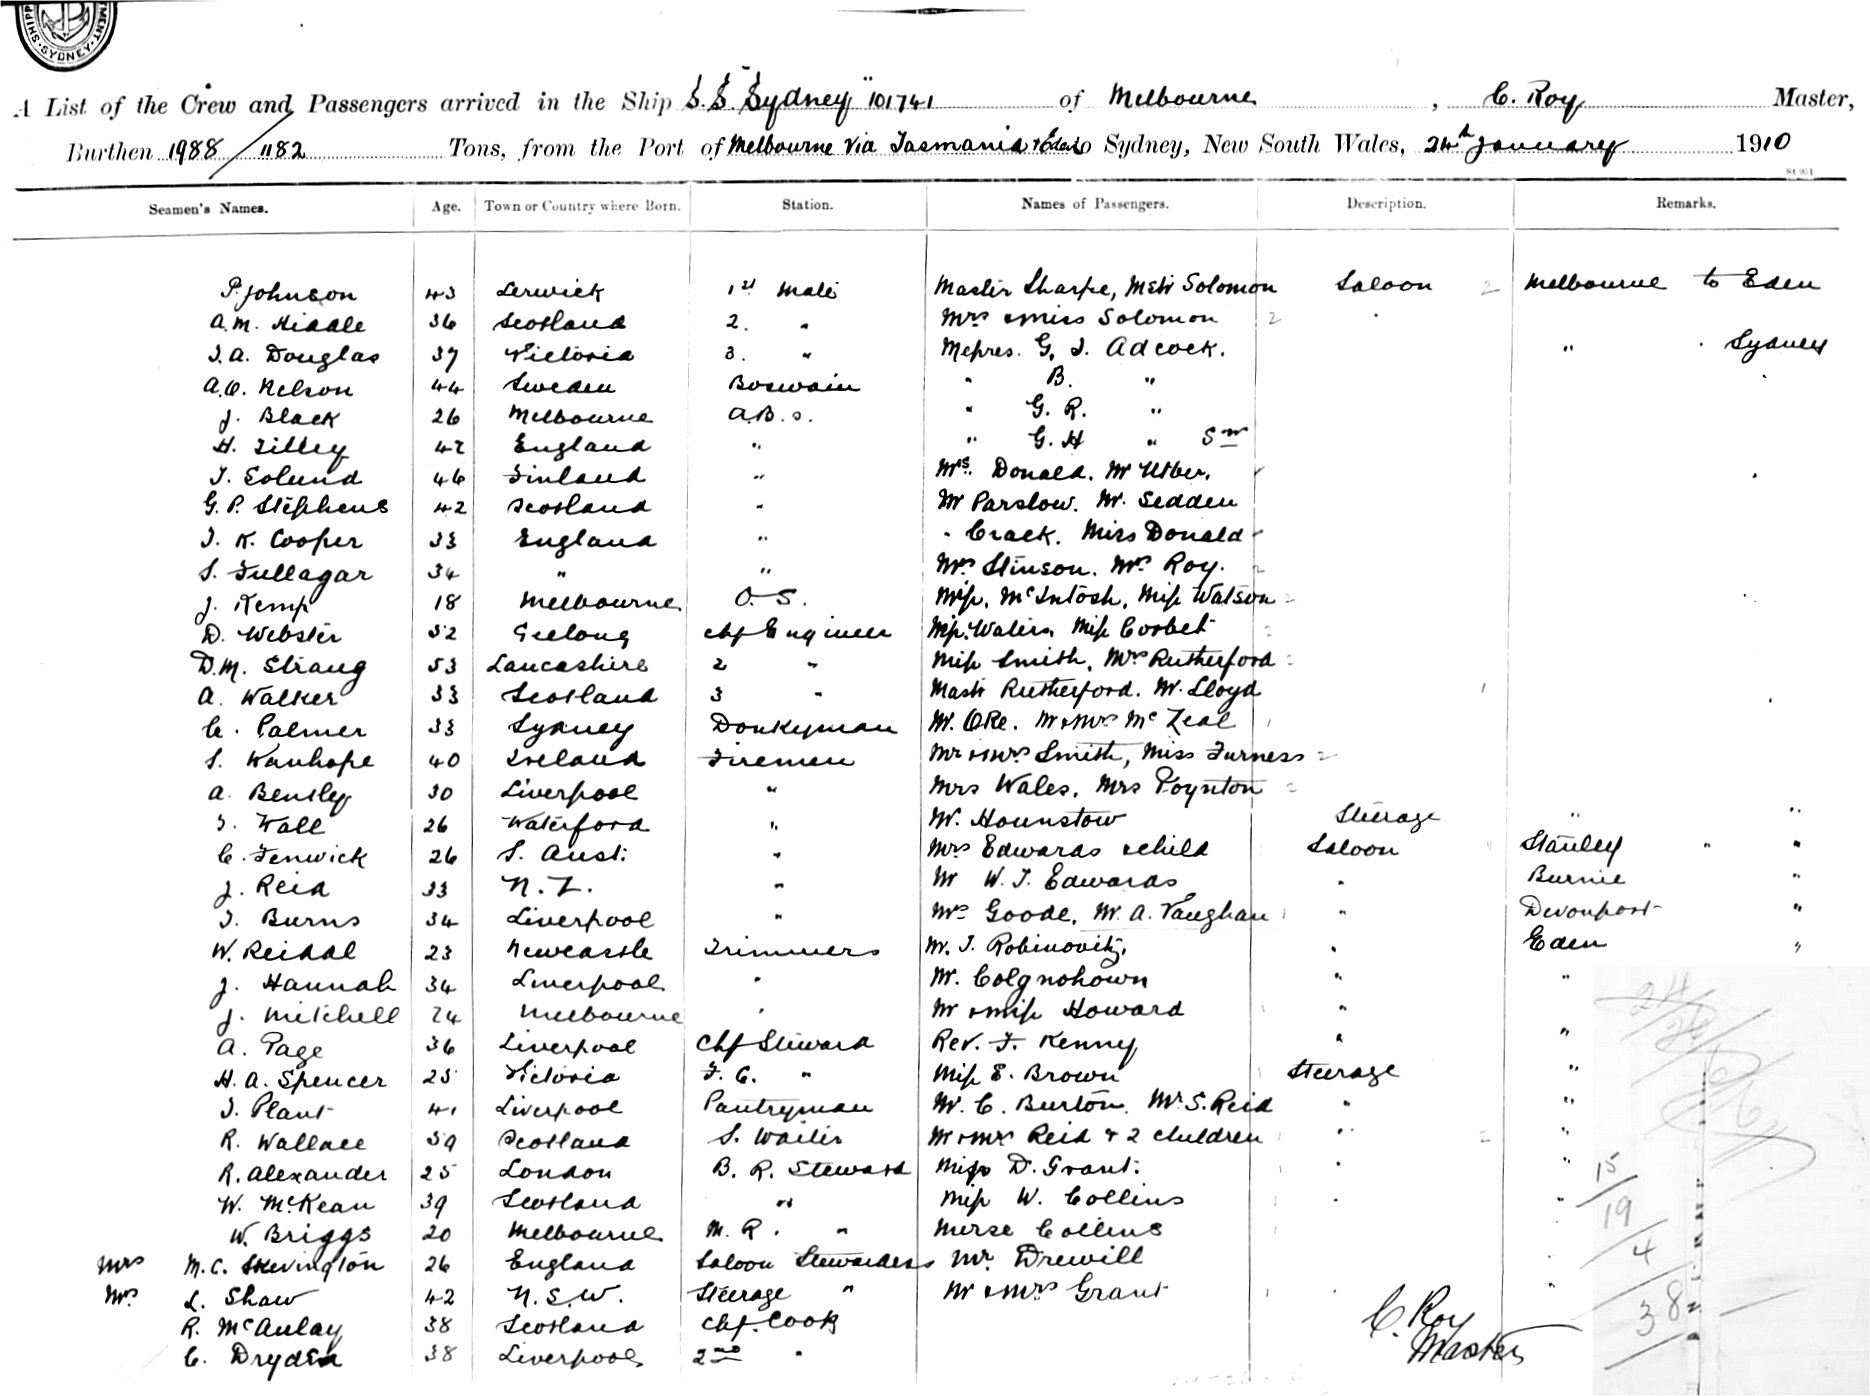 SYDNEY
A List of the Crew and Passengers arrived in the Ship S.S. "Sydney" 101741 of Melbourne, C. Roy Master,
Burthen 1988/1182 Tons, from the Port of Melbourne via Tasmania & Eden to Sydney, New South Wales, 24th January 1910
Seamen's Names. Age. Town or Country where Born. Station. Names of Passengers. Description. Remarks.
P. Johnson 43 Lerwick 1st Mate Master Sharpe, Mstr Solomon Saloon 2 Melbourne to Eden
A.M. Hiddle 36 Scotland 2. " Mrs & Miss Solomon 2
J.A. Douglas 37 Victoria 3. " Messrs. G. J. Adcock. " Sydney
A.O. Nelson 44 Sweden Boswain " B. "
J. Black 26 Melbourne A.B.s. " G. R. "
H. Tilley 42 England " " G. H " Snr
J. Eolund 46 Finland " Mrs. Donald. Mr Utber.
G.P. Stephens 42 Scotland " Mr Parslow. Mr. Sedden
J. K. Cooper 33 England " " Crack. Miss Donald
S. Fullagar 34 " " Mrs. Stinson. Mrs Roy.
J. Kemp 18 Melbourne O.S. Miss. McIntosh, Miss Watson
D. Webster 52 Geelong Chf Engineer Miss. Waters Miss Corbet
D.M. Strang 53 Lancashire 2 " Miss Smith, Mrs Rutherford
A. Walker 33 Scotland 3 " Mastr Rutherford. Mr. Lloyd
C. Palmer 33 Sydney Donkeyman Mr. Oke. Mr & Mrs McZeal
S. Wanhope 40 Ireland Firemen Mr & Mrs Smith, Miss Furness
A. Bensley 30 Liverpool " Mrs Wales, Mrs Poynton
J. Wall 26 Waterford " Mr. Hounstow Steerage " "
C. Fenwick 26 S. Aust. " Mrs Edwards & child Saloon Stanley " "
J. Reid 33 N.Z. " Mr W. J. Edwards " Burnie "
J. Burns 34 Liverpool " Mrs Goode, Mr. A. Vaughan " Devonport "
W. Reidal 23 Newcastle Trimmers Mr. J. Robinovitz. " Eden "
J. Hannah 34 Liverpool " Mr. Colgnohown " "
J. Mitchell 24 Melbourne " Mr & Miss Howard "
A. Page 36 Liverpool Chf Steward Rev. F. Kenny " "
H. A. Spencer 25 Victoria F.C. " Miss E. Brown Steerage "
J. Plant 41 Liverpool Pantryman Mr. C. Burton. Mr. S. Reid " "
R. Wallace 39 Scotland S. Waiter Mr & Mrs Reid & 2 children " 2 "
R. Alexander 25 London B. R. Steward Miss D. Grant. " "
W. McKean 39 Scotland " Miss W. Collins " "
W. Briggs 20 Melbourne M. R. " Nurse Collins
Mrs M.C. Skevington 26 England Saloon Stewardess Mr. Drewill "
Mrs L. Shaw 42 N.S.W. Steerage " Mr & Mrs Grant "
R. McAulay 38 Scotland Chf. Cook
C. Dryden 38 Liverpool 2nd "
C. Roy
Master
15
19
4
38